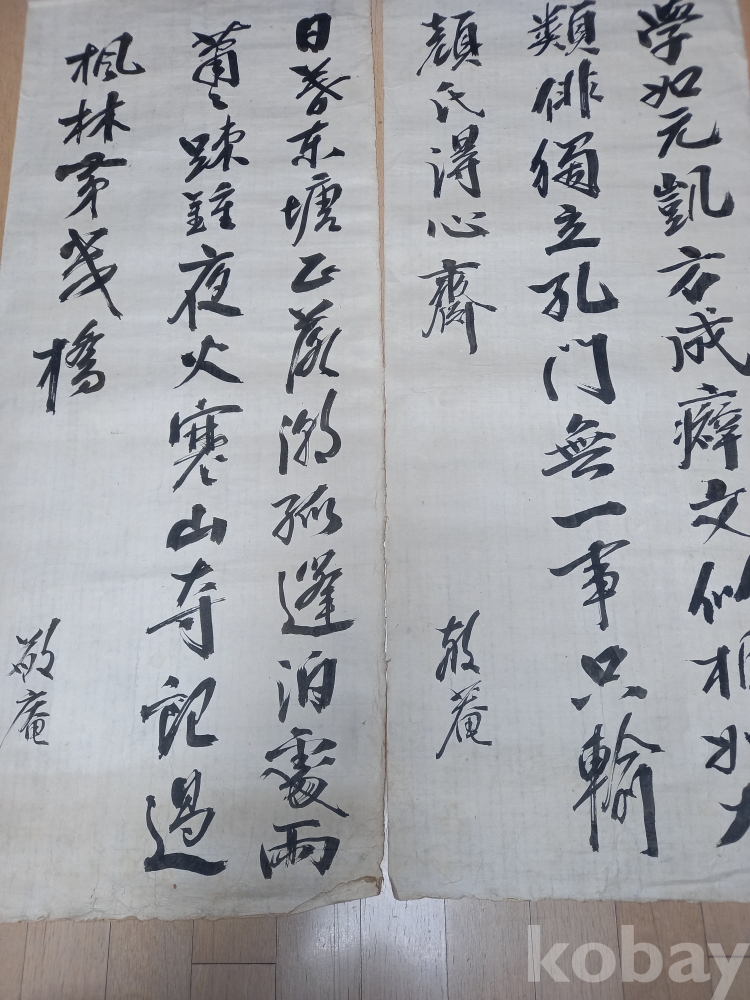 学如元凱方成癖文似相如
類俳獨立孔門無一事只輸
顔氏得心齋
敬菴
日暮東塘正落潮孤篷泊處雨
蕭〻疎鍾夜火寒山寺記過
楓林第幾橋
敬庵
kobay